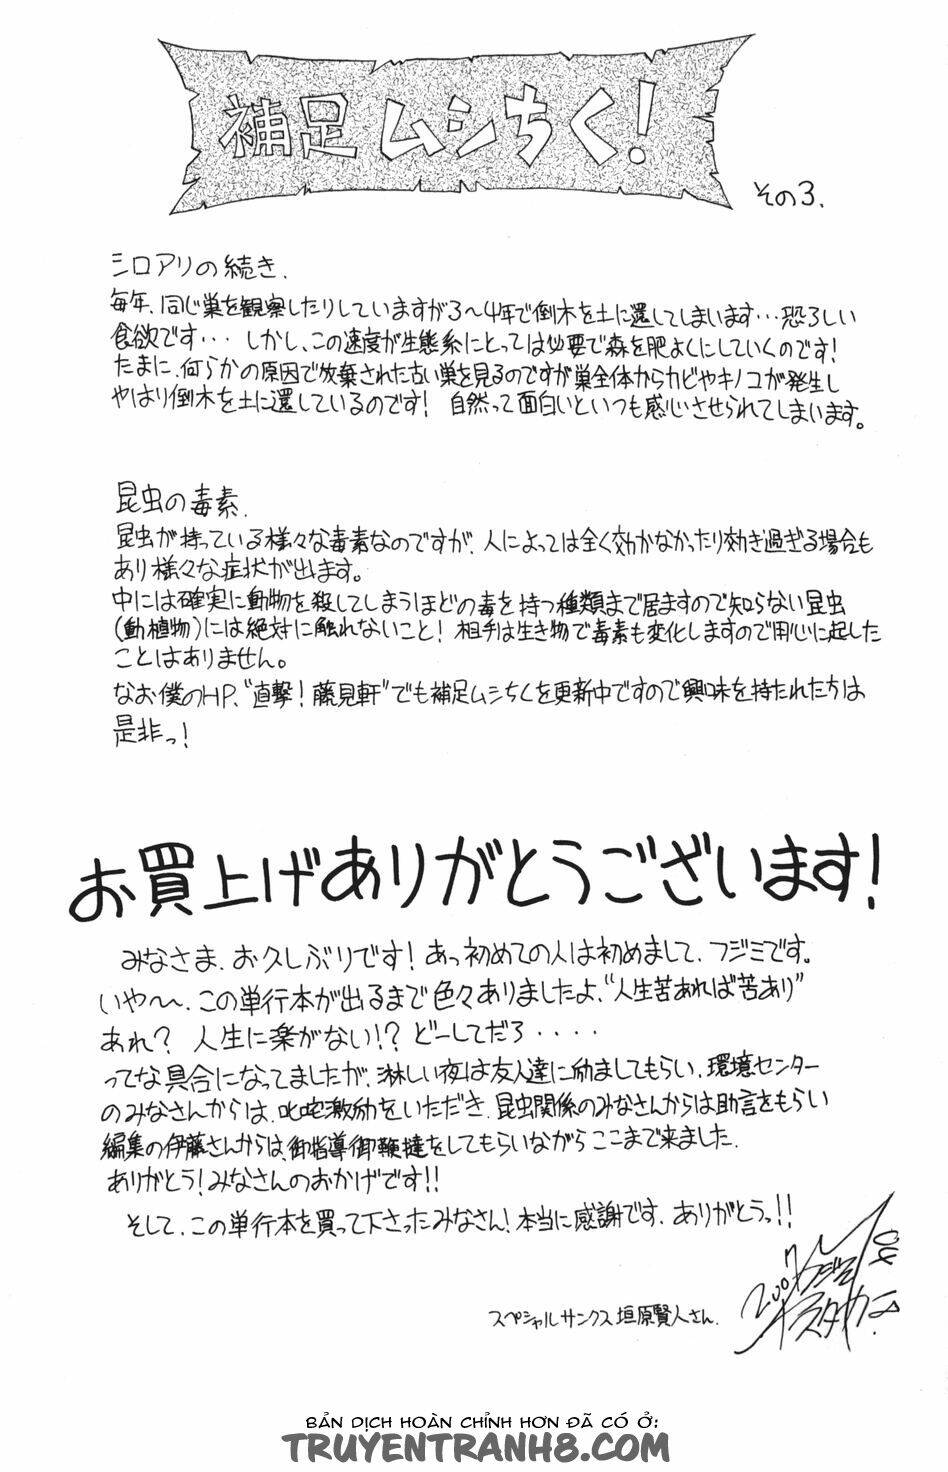 補足ムシちく!
その3.
シロアリの続き.
毎年、同じ巣を観察したりしていますが3～4年で倒木を土に還してしまいます…恐ろしい
食欲です… しかし、この速度が生態系にとっては必要で森を肥よくにしていくのです!
たまに、何らかの原因で放棄された古い巣を見るのですが巣全体からカビやキノコが発生し
やはり倒木を土に還しているのです! 自然って面白いといつも感心させられてしまいます。
昆虫の毒素.
昆虫が持っている様々な毒素なのですが、人によっては全く効かなかったり効き過ぎる場合も
あり様々な症状が出ます。
中には確実に動物を殺してしまうほどの毒を持つ種類まで居ますので知らない昆虫
(動植物)には絶対に触れないこと! 相手は生き物で毒素も変化しますので用心に起した
ことはありません。
なお僕のHP、"直撃!藤見軒"でも補足ムシちくを更新中ですので興味を持たれたちは
是非っ!
お買上げありがとうございます!
みなさま、お久しぶりです!あっ初めての人は初めまして、フジミです。
いや～、この単行本が出るまで色々ありましたよ、"人生苦あれば苦あり"
あれ? 人生に楽がない!? どーしてだろ・・・・
ってな具合になってましたが、淋しい夜は友人達に励ましてもらい、環境センター
のみなさんからは、叱咤激励をいただき、昆虫関係のみなさんからは助言をもらい
編集の伊藤さんからは、御指導御鞭撻をしてもらいながらここまで来ました.
ありがとう!みなさんのおかげです!!
そして、この単行本を買って下さったみなさん!本当に感謝です、ありがとうっ!!
2007
スペシャルサンクス垣原賢人さん.
BẢN DỊCH HOÀN CHỈNH HƠN ĐÃ CÓ Ở:
TRUYENTRANH8.COM